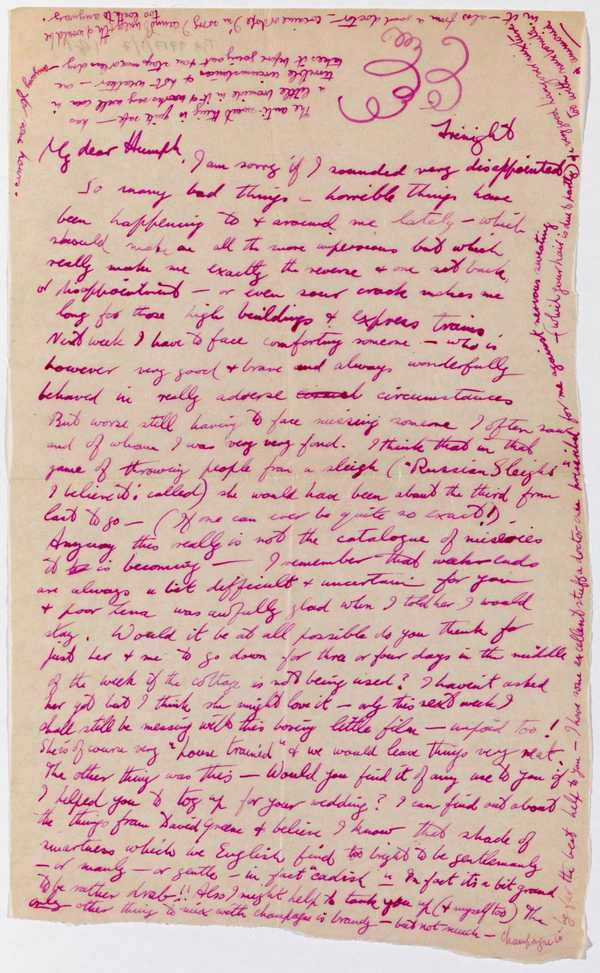 Tonight
My dear Humph,
I am sorry if I sounded very disappointed
So many bad things – horrible things have
been happening to & around me lately – which
should make me all the more impervious but which
really make me exactly the reverse & one set back,
or disappointment – or even sour crack makes me
long for those high buildings & express trains
Next week I have to face comforting someone – who is
however very good & brave and always wonderfully
behaved in really adverse circumstances
But worse still having to face missing someone I often saw
and of whom I was very very fond. I think that in that
game of throwing people from a sleigh ("Russian Sleigh"
I believe it's called) she would have been about the third from
last to go – (If one can ever be quite so exact!)
Anyway this really is not the catalogue of miseries
it is becoming – I remember that week ends
are always a bit difficult & uncertain for you
& poor Tina was awfully glad when I told her I would
stay. Would it be at all possible do you think for
just her & me to go down for three or four days in the middle
of the week if the cottage is not being used? I haven't asked
her yet but I think she might love it – only this next week I
shall still be messing with this boring little film – unpaid too!
She is of course very "house trained" & we would leave things very neat.
The other thing was this – Would you find it of any use to you if
I helped you to tog up for your wedding? I can find out about
the things from David Greene & believe I know that shade of
smartness which we English find too bright to be gentlemanly
– or manly – or gentle – in fact caddish – In fact its a bit grand
to be rather drab!! Also I might help to tank you up (& myself too) The
only other thing to mix with champagne is brandy – but not much – champagne is
by far the best help to you – I have some excellent stuff a doctor
for me against nervous sweating
(which your hair is due partly)
The anti-sweat thing is quite safe – has
a little bromide in it & works very well even in
terrible circumstances & hot weather – one
takes it before going out & can stay